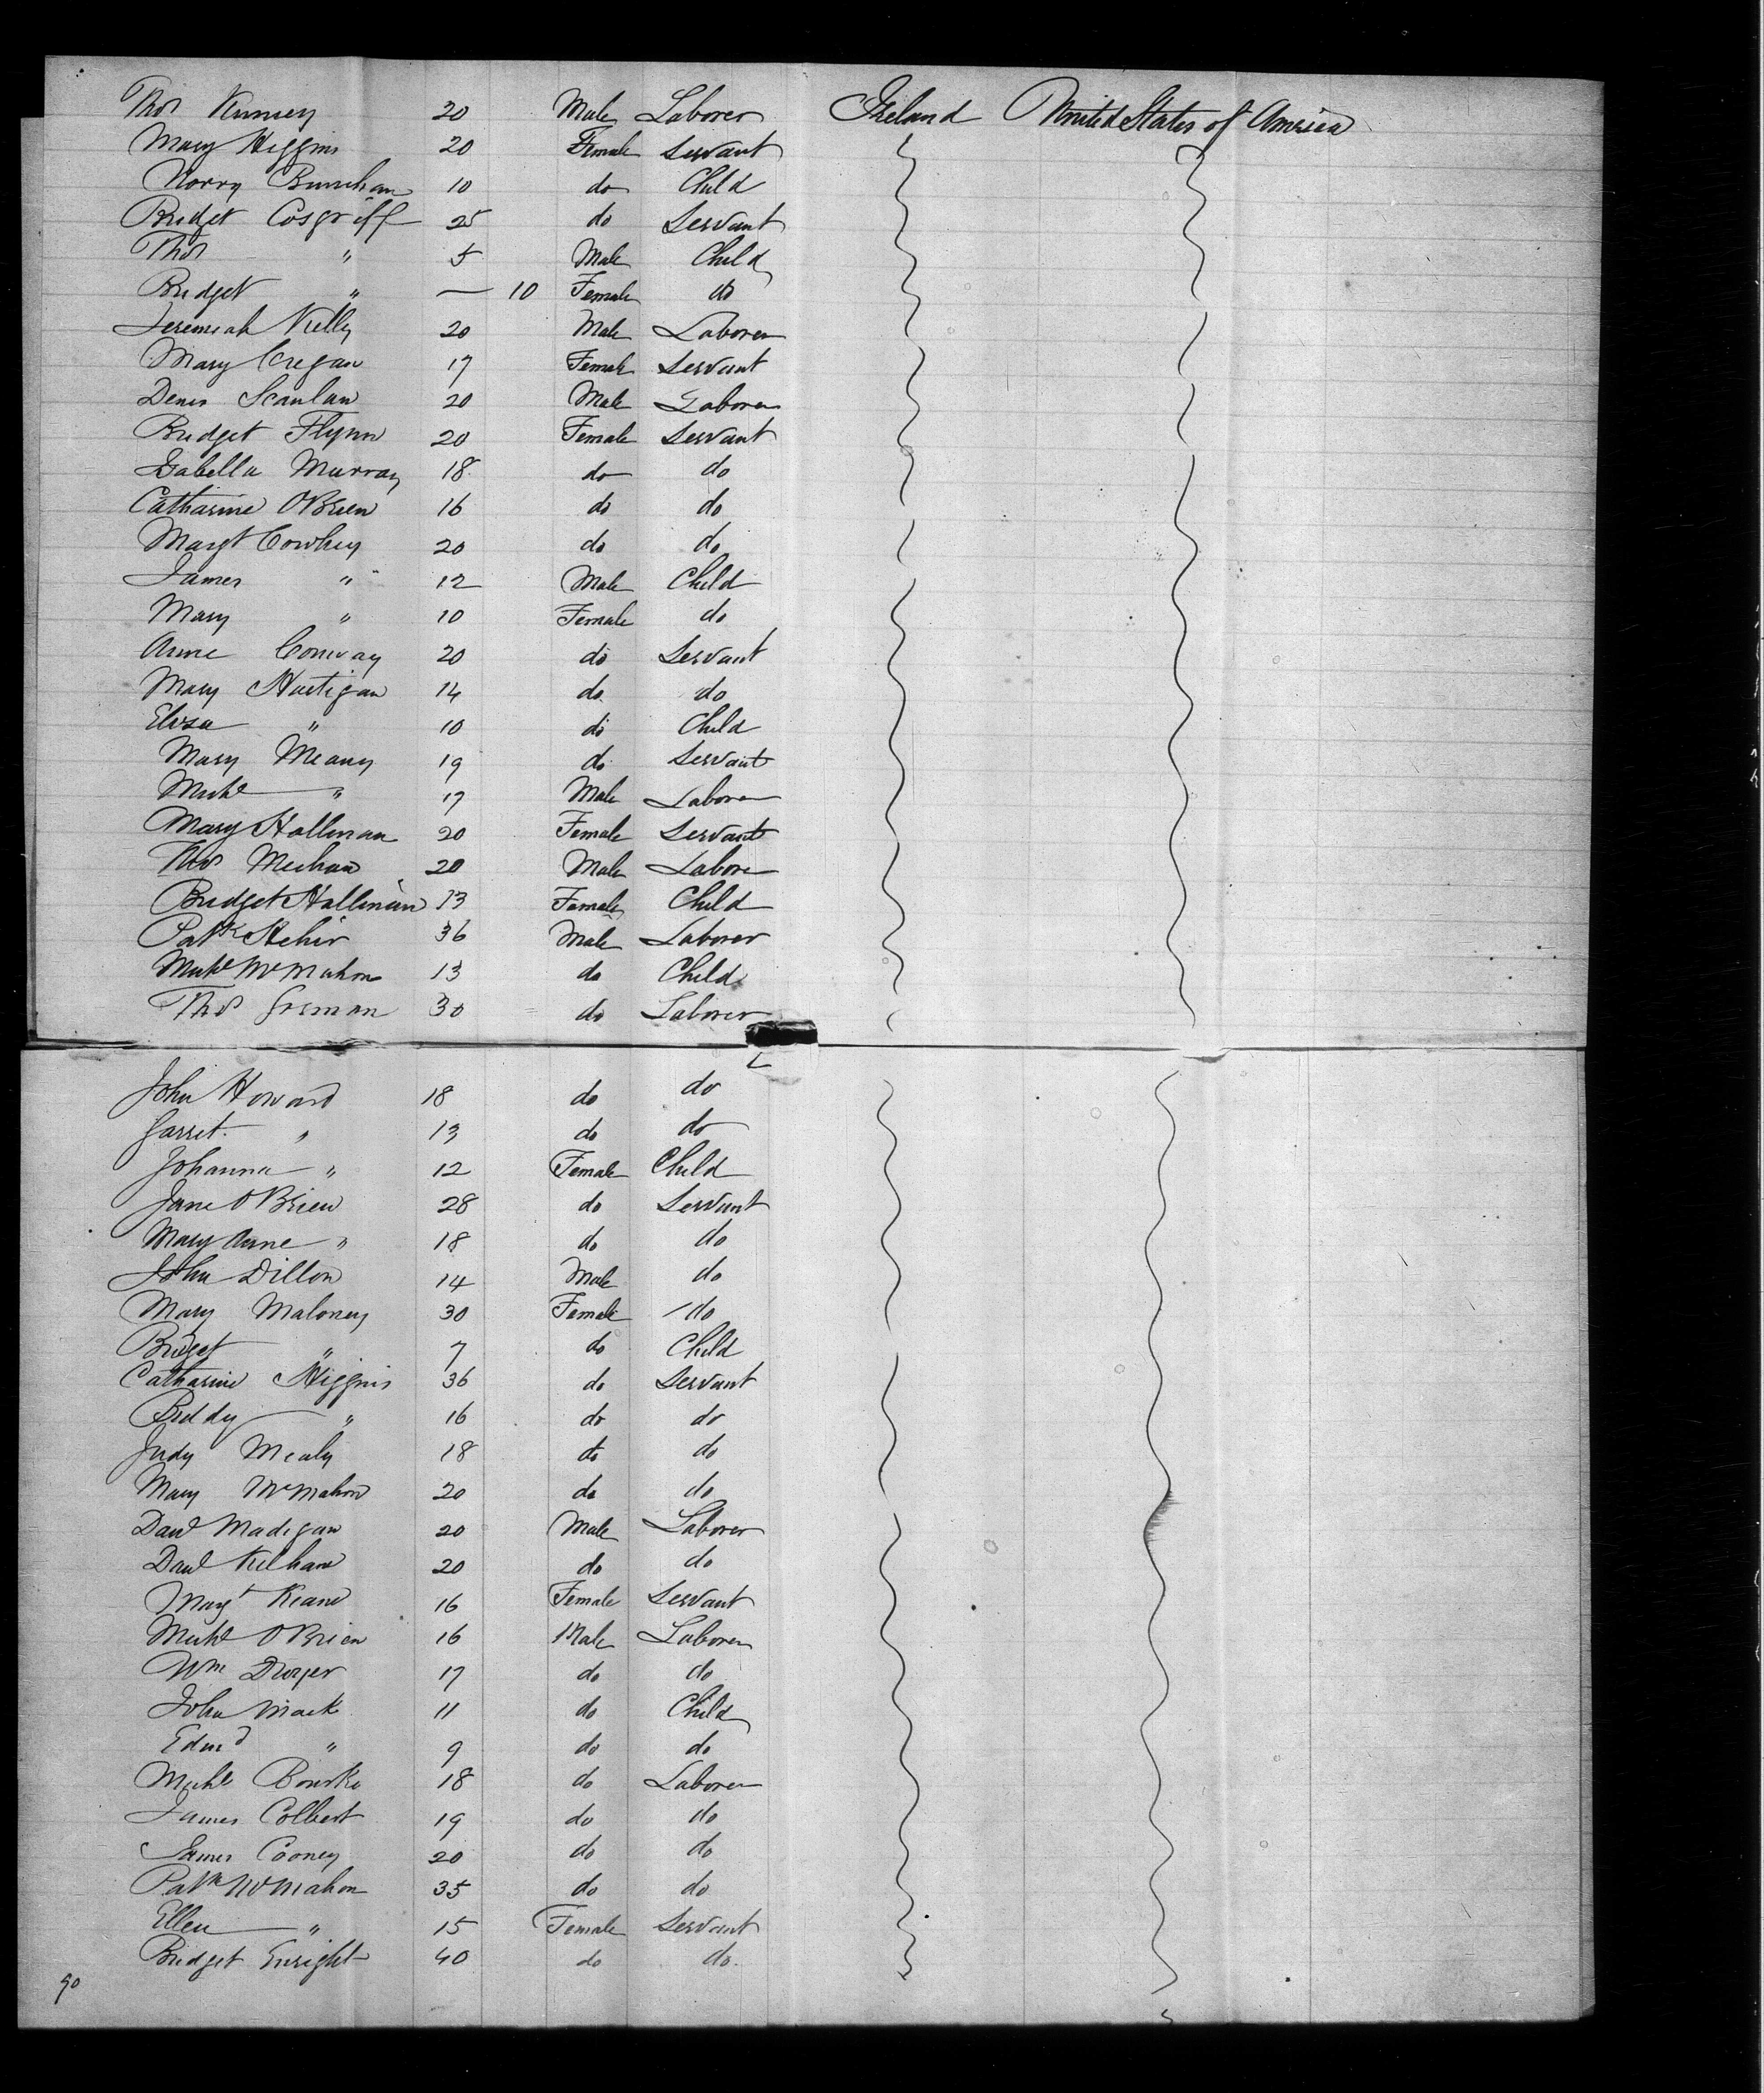 Thos Kumsey 20 Male Laborer Ireland United States of America
Mary Higgins 20 Female Servant
Norry 10 do Child
Bridget Cosgriff 25 do Servant
Thos " 5 Male Child
Bridget " — 10 Female do
Jeremiah Kelly 20 Male Laborer
Mary Cregan 17 Female Servant
Denis Scanlan 20 Male Laborer
Bridget Flynn 20 Female Servant
Isabella Murray 18 do do
Catharine OBrien 16 do do
Margt Cowhey 20 do do
James " 12 Male Child
Mary " 10 Female do
Anne Conway 20 do Servant
Mary Hartigan 14 do do
Eliza " 10 do Child
Mary Meany 19 do Servant
Michl " 17 Male Laborer
Mary Hallinan 20 Female Servant
Thos Meehan 20 Male Laborer
Bridget Hallinan 13 Female Child
Patk Hehir 36 Male Laborer
Michl McMahon 13 do Child
Thos Gorman 30 do Laborer
John Howard 18 do do
Garret " 13 do do
Johanna " 12 Female Child
Jane OBrien 28 do Servant
Mary Anne " 18 do do
John Dillon 14 Male do
Mary Maloney 30 Female do
Bridget " 7 do Child
Catharine Higgins 36 do Servant
Biddy " 16 do do
Judy Mealy 18 do do
Mary McMahon 20 do do
Danl Madigan 20 Male Laborer
Danl 20 do do
Margt Keane 16 Female Servant
Michl OBrien 16 Male Laborer
Wm Dwyer 17 do do
John Mack 11 do Child
Edmd " 9 do do
Michl Bourke 18 do Laborer
James Colbert 19 do do
James Cooney 20 do do
Patk McMahon 35 do do
Ellen " 15 Female Servant
Bridget Enright 40 do do
90